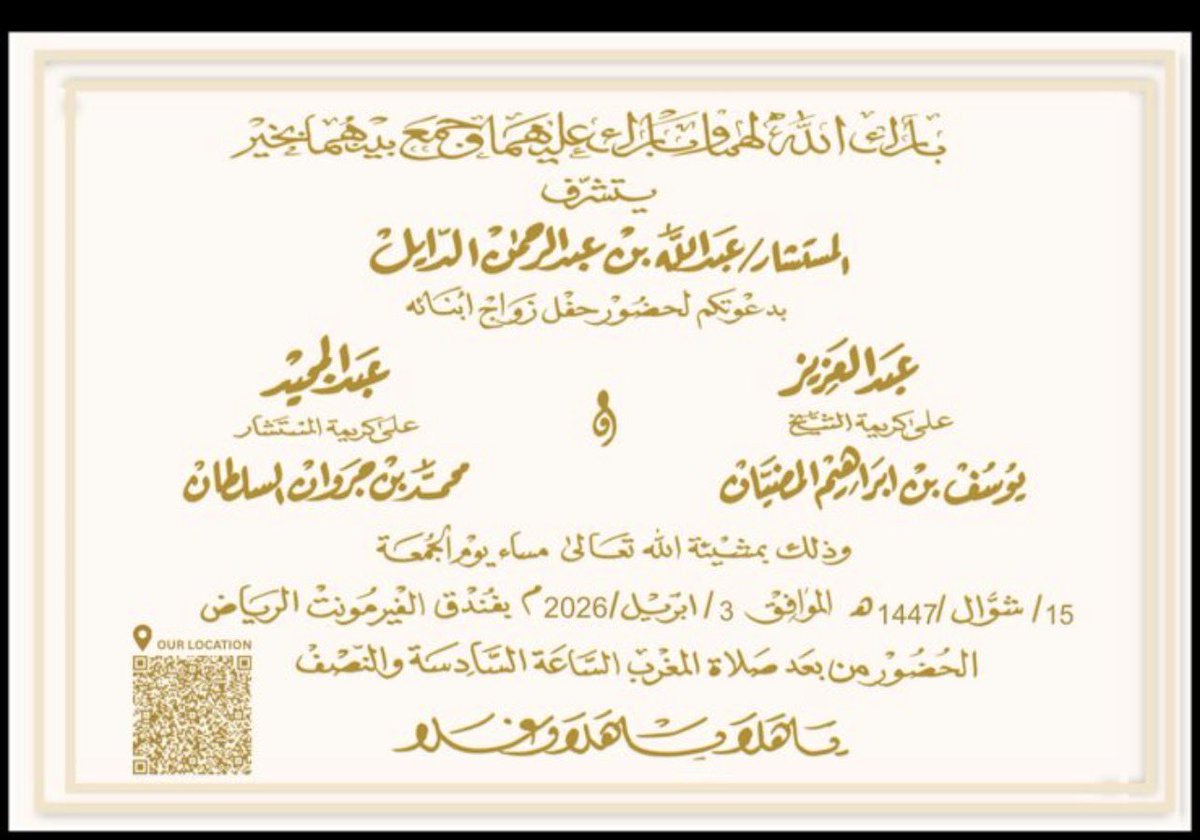 بارك الله لهما وبارك عليهما وجمع بينهما بخير
يتشرف
المستشار/عبدالله بن عبدالرحمن الدايل
بدعوتكم لحضور حفل زواج ابنائه
عبدالعزيز
على كريمة الشيخ
يوسف بن ابراهيم المضيان
و
عبدالمجيد
على كريمة المستشار
محمد بن جروان السلطان
وذلك بمشيئة الله تعالى مساء يوم الجمعة
15/ شوال /1447ه الموافق 3/ ابريل/2026م بفندق الفيرمونت الرياض
الحضور من بعد صلاة المغرب الساعة السادسة والنصف
ياهلا ياهلا وغلا
OUR LOCATION